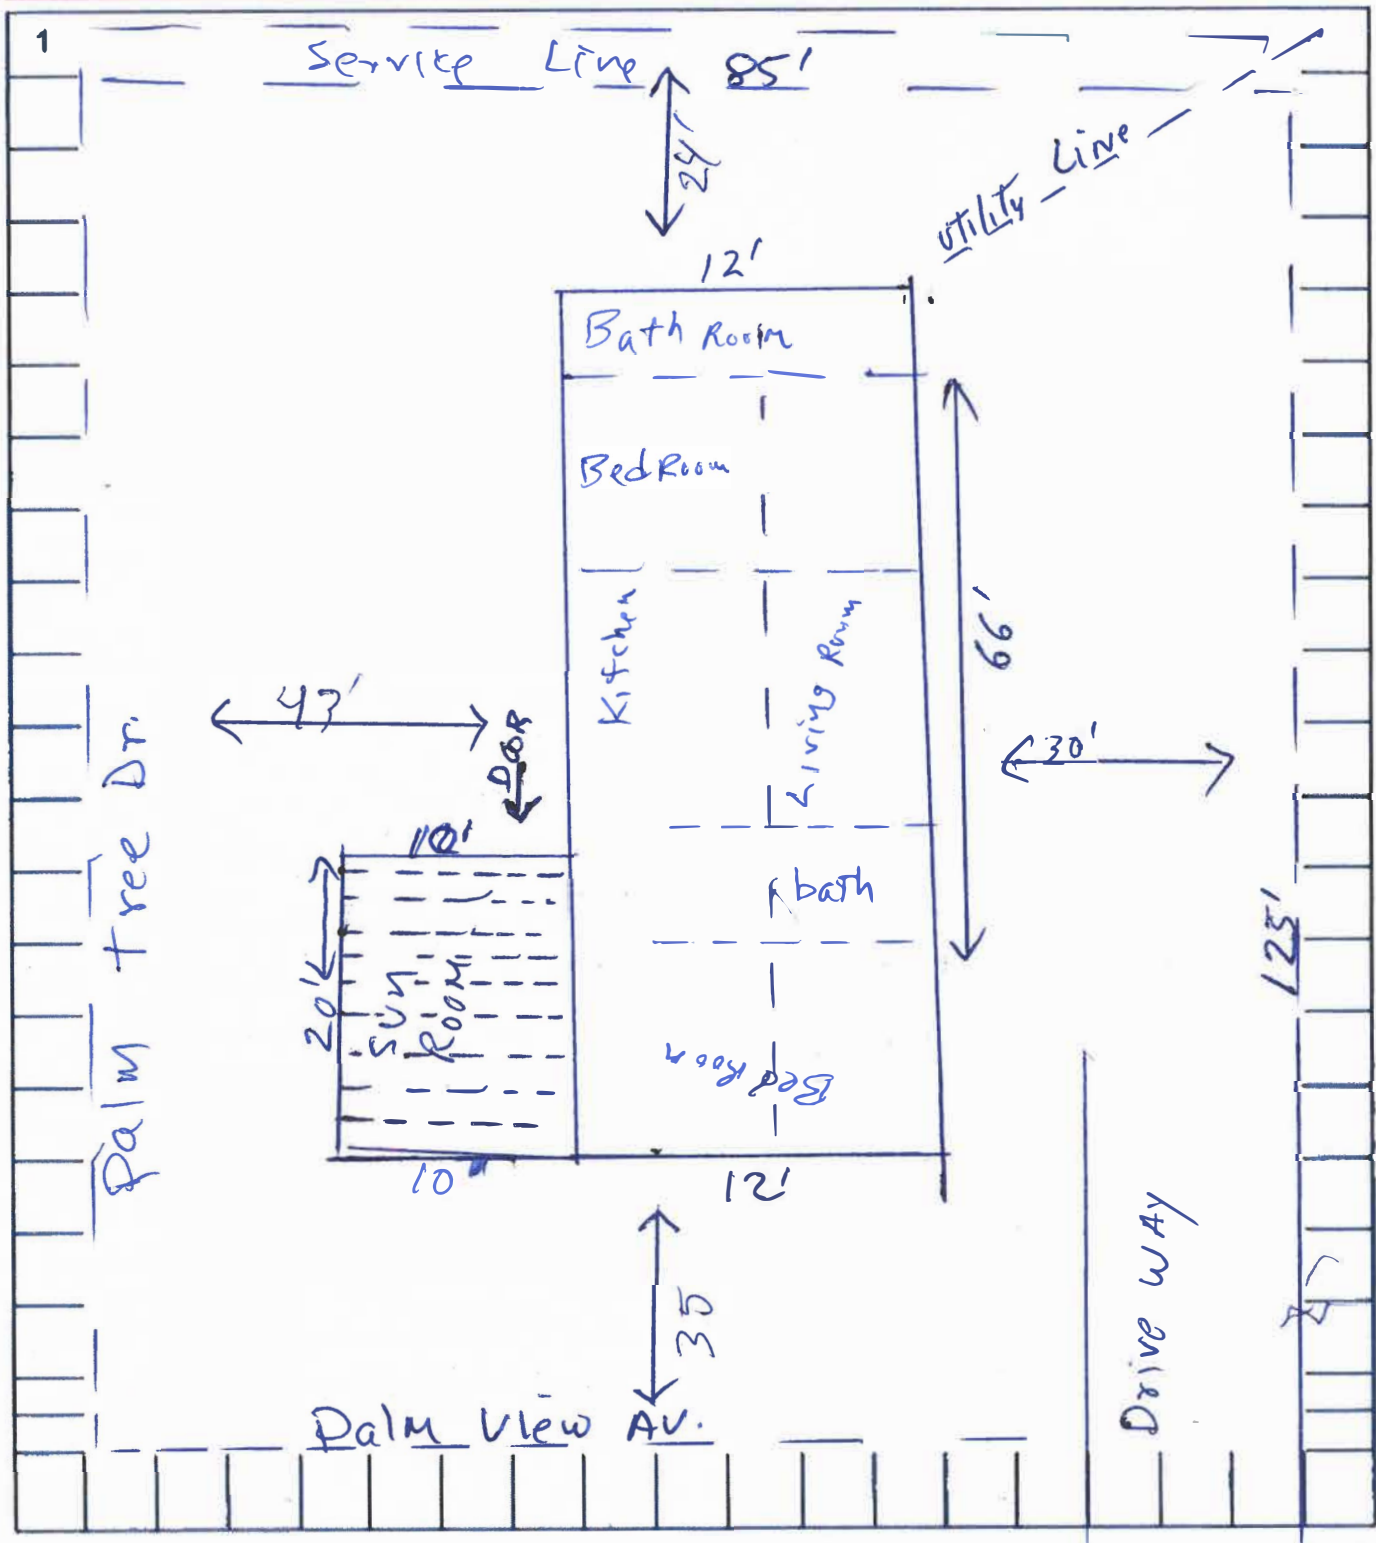 1
Service Line 85'
24'
Utility Line
12'
Bath Room
BedRoom
Kitchen
Living Room
66'
43'
DOOR
30'
Palm Tree Dr.
10'
20'
SUN
ROOM
bath
125'
Bed Room
10
12'
35
Drive WAY
Palm View AV.